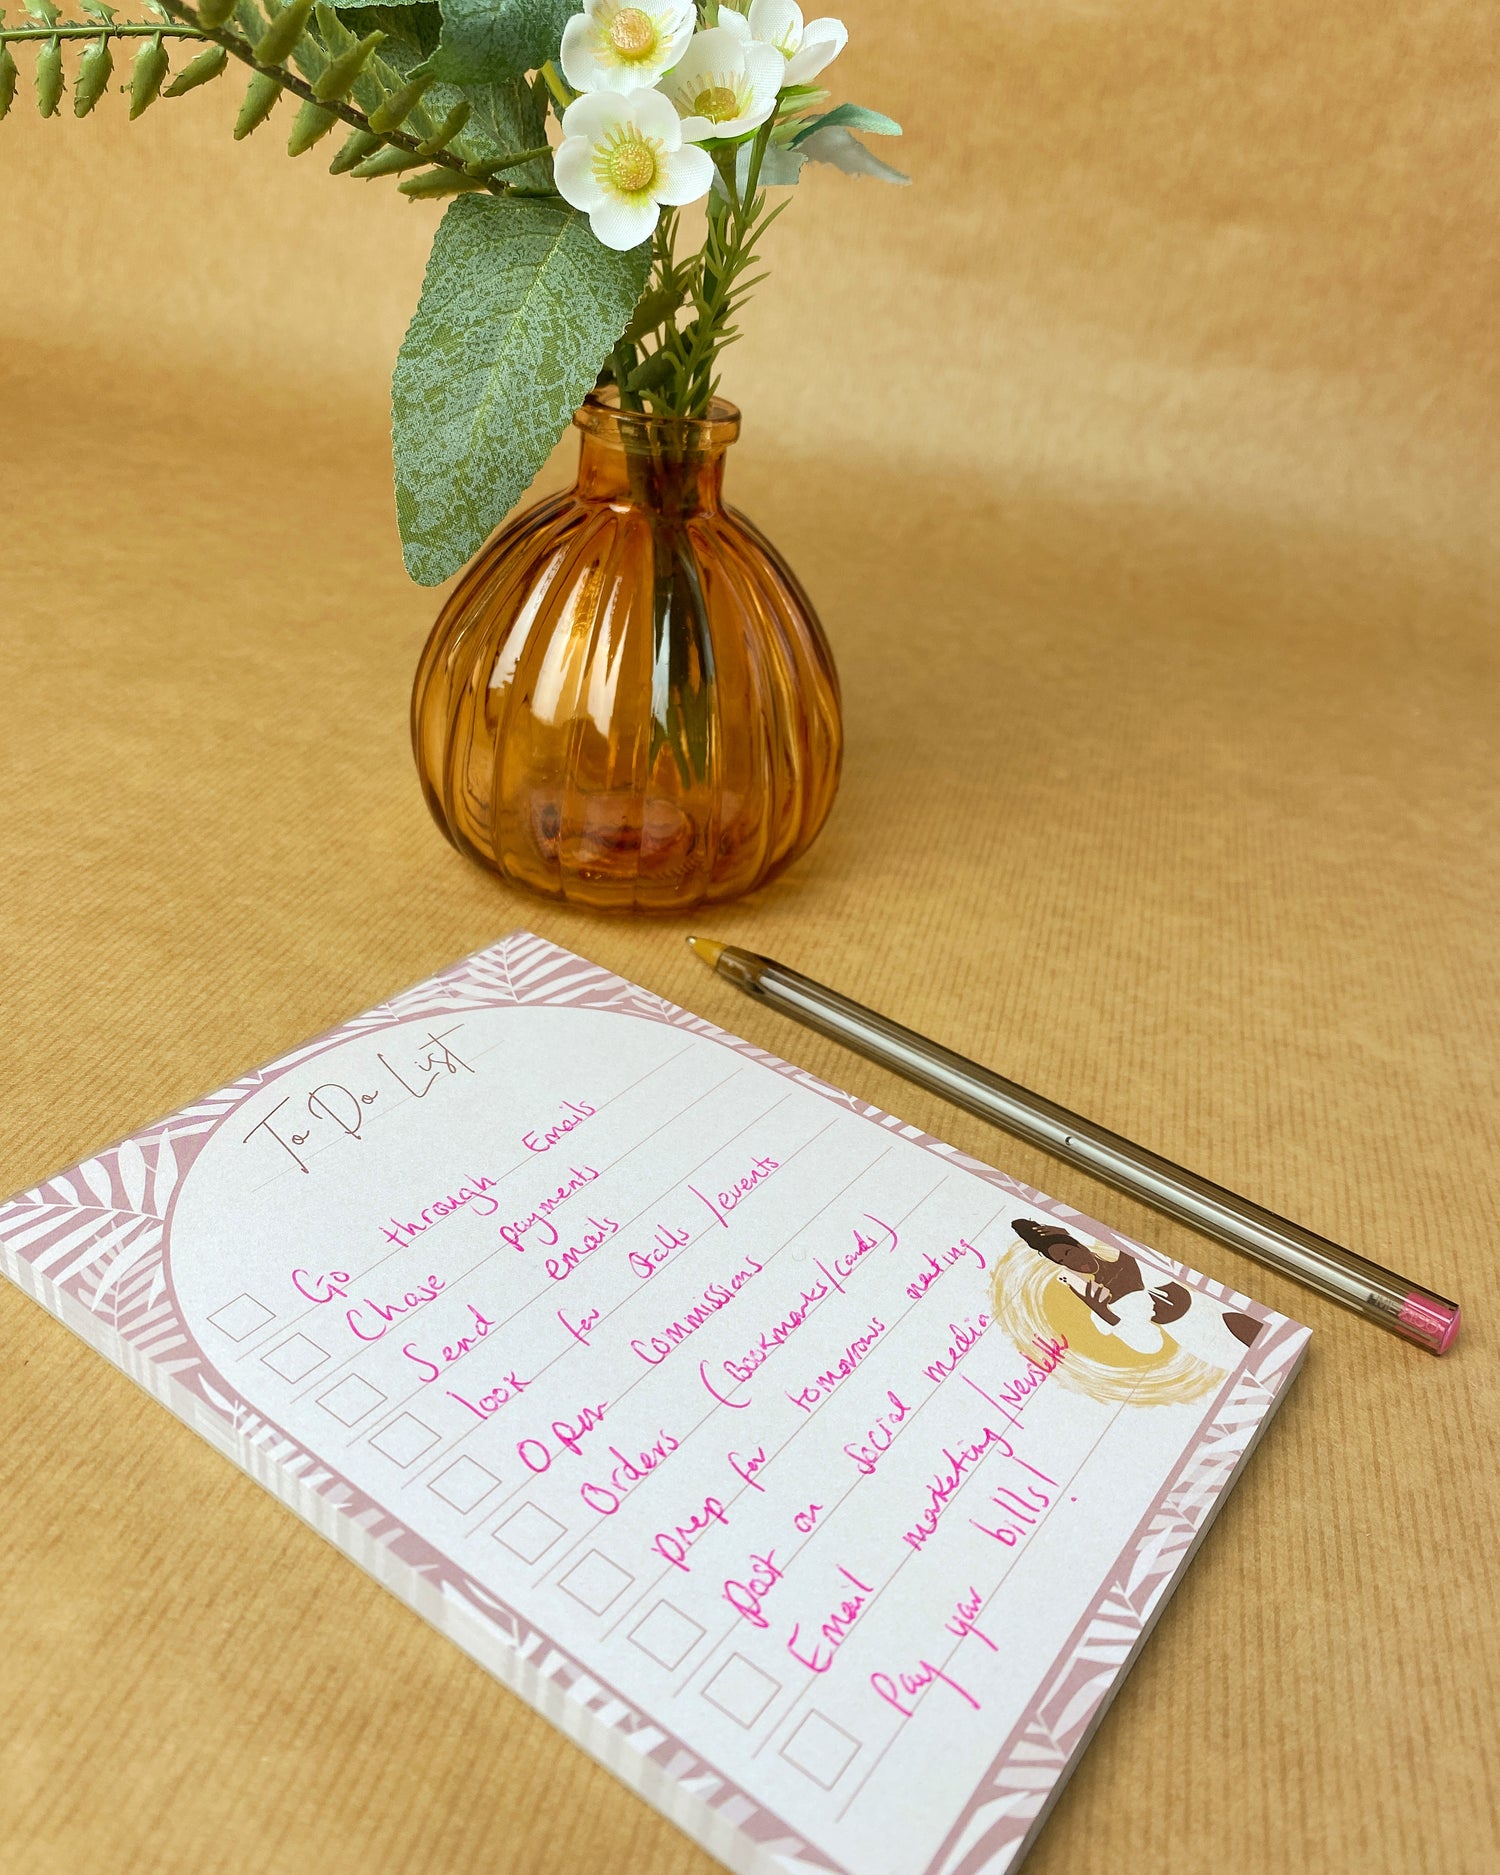 To Do List
Go through Emails
Chase payments
Send emails
look for stalls / events
Open Commissions
Orders (Bookmarks/cards)
prep for tomorrows meeting
post on social media
Email marketing/Newslette
Pay your bills!